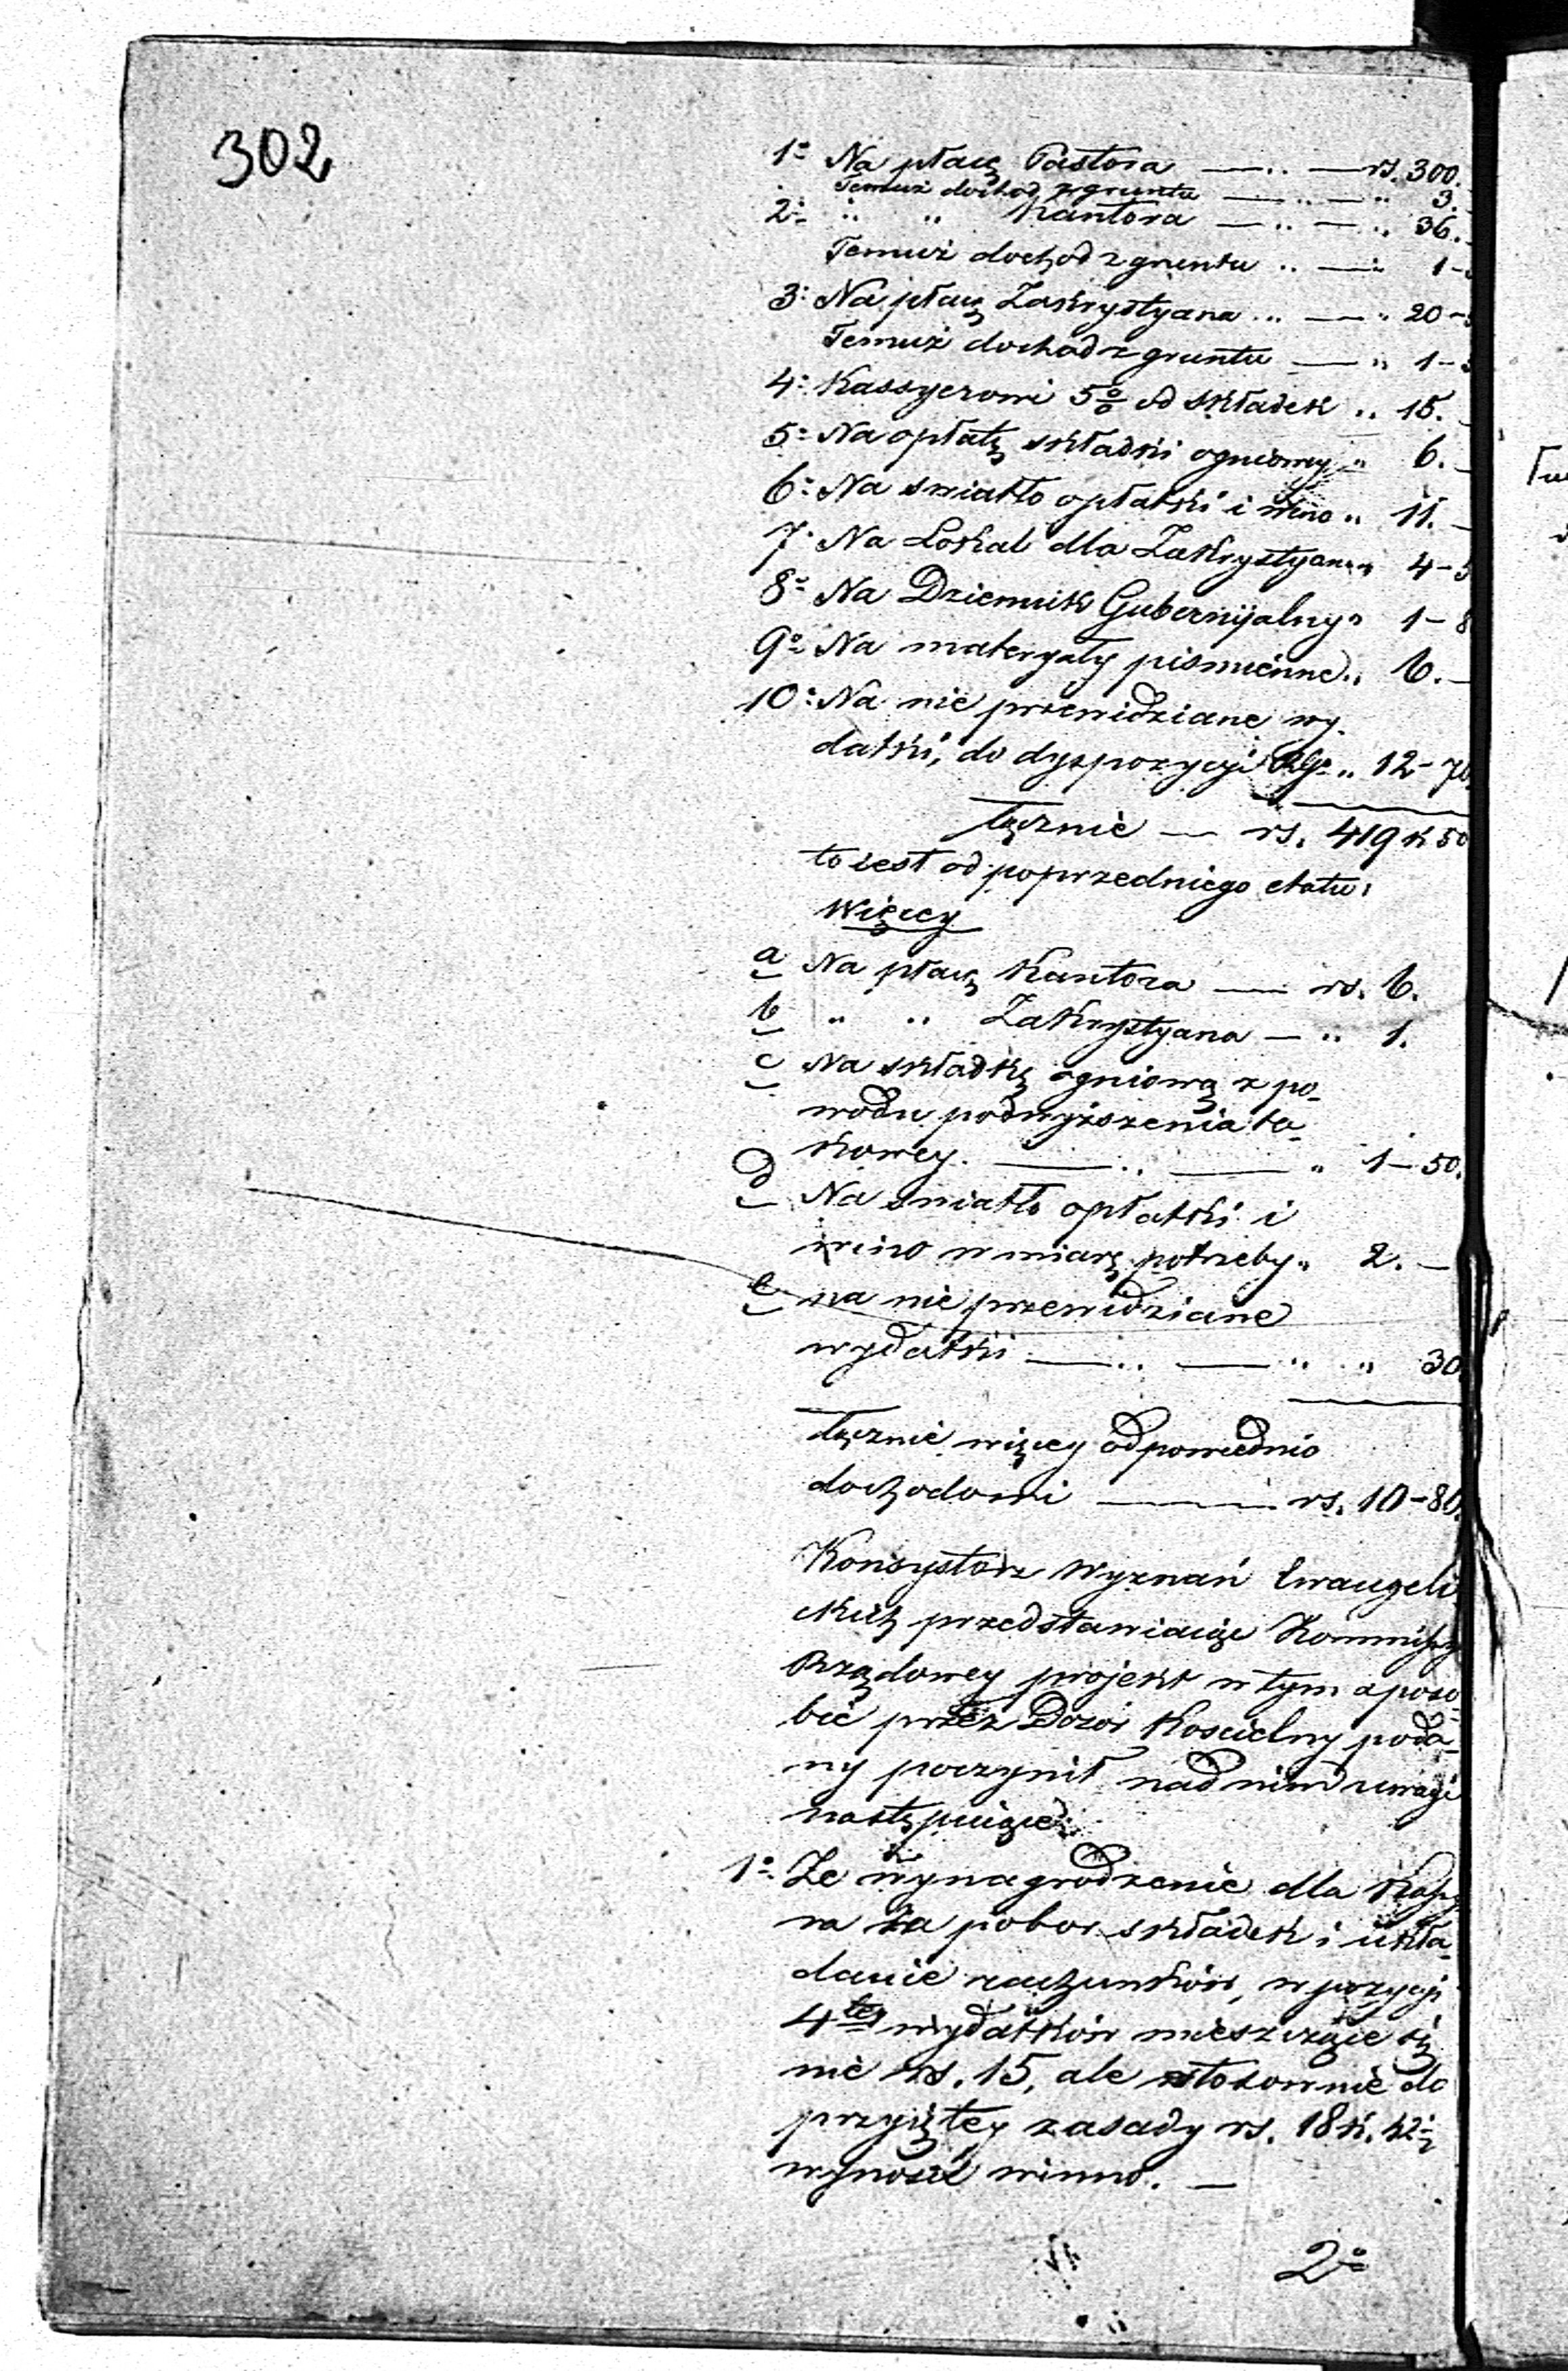 302
1o Na płacę Pastora — .. — rs. 300.
Temuż dochod z gruntu — .. — " 3.
2o " " Kantora — .. — .. 36.
Temuż dochod z gruntu .. — " 1-
3o Na płacę Zakrystyana .. — " 20-
Temuż dochod z gruntu — " 1-
4o Kassyerowi 5 0/0 od składek .. 15.
5o Na opłatę składki ogniowey " 6. —
6o Na swiatło opłatki i wino " 11. —
7o Na Lokal dla Zakrystyana " 4-5
8o Na Dziennik Gubernijalny " 1-8
9o Na materyały pismienne " 6. —
10o Na nie przewidziane wy-
datki, do dyspozycji " 12-70
Łącznie — rs. 419 k 50
to iest od poprzedniego etatu
Więcey
a Na płacę Kantora — rs. 6.
b " " Zakrystyana — " 1.
c Na składkę ogniową z po-
wodu podwyższenia ta-
kowey. — .. — " 1-50.
d Na swiatło opłatki i
wino w miarę potrzeby " 2. —
e na nie przewidziane
wydatki — .. — " " 30.
Łącznie więcey odpowiednio
dochodowi — rs. 10-80.
Konsystorz Wyznań Ewangeli-
ckich przedstawiaiąc Kommissyi
Rządowey projekt w tym sposo-
bie przez Dozór Koscielny poda-
ny poczynił nad nim uwagi
następuiące:
1o Ze wynagrodzenie dla Kassye
ra za pobor składek i ukła-
danie rachunków, w pozycyi
4tey wydatków mieszczące się
nie rs. 15, ale stosownie do
przyiętey zasady rs. 18 k. 42½
wynosić winno. —
2o